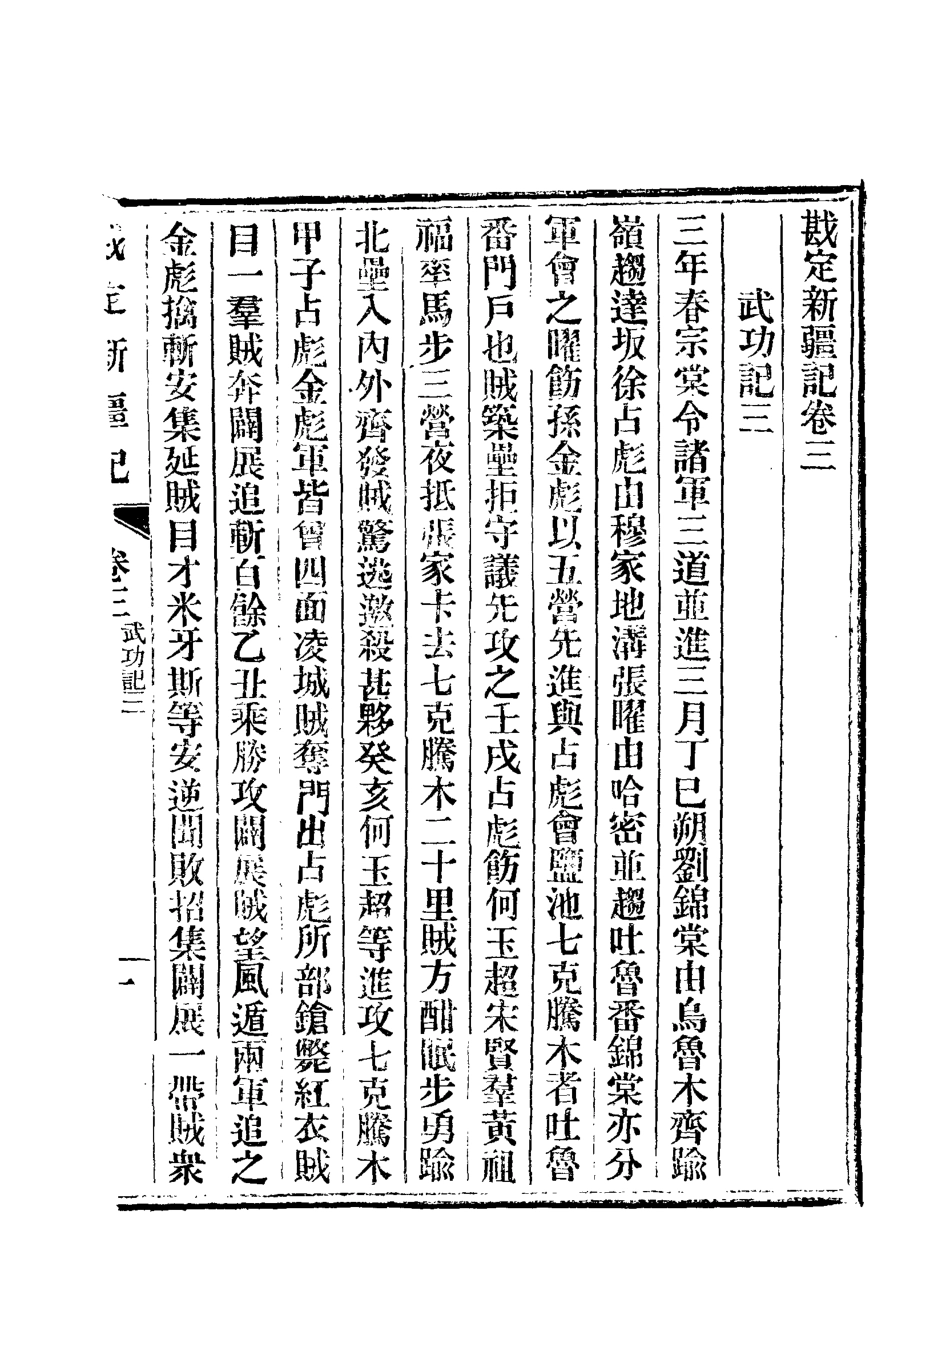 戡定新疆記卷三
武功記三
三年春宗棠令諸軍三道並進三月丁巳朔劉錦棠由烏魯木齊踰
嶺趨達坂徐占彪由穆家地溝張曜由哈密並趨吐魯番錦棠亦分
軍會之曜飭孫金彪以五營先進與占彪會鹽池七克騰木者吐魯
番門戶也賊築壘拒守議先攻之壬戌占彪飭何玉超宋賢羣黃祖
福率馬步三營夜抵張家卡去七克騰木二十里賊方酣眠步勇踰
北壘入內外齊發賊驚逃邀殺甚夥癸亥何玉超等進攻七克騰木
甲子占彪金彪軍皆會四面凌城賊奪門出占彪所部鎗斃紅衣賊
目一羣賊奔闢展追斬百餘乙丑乘勝攻闢展賊望風遁兩軍追之
金彪擒斬安集延賊目才米牙斯等安逆聞敗招集闢展一帶賊衆
戡定新疆記 卷三 武功記三 一